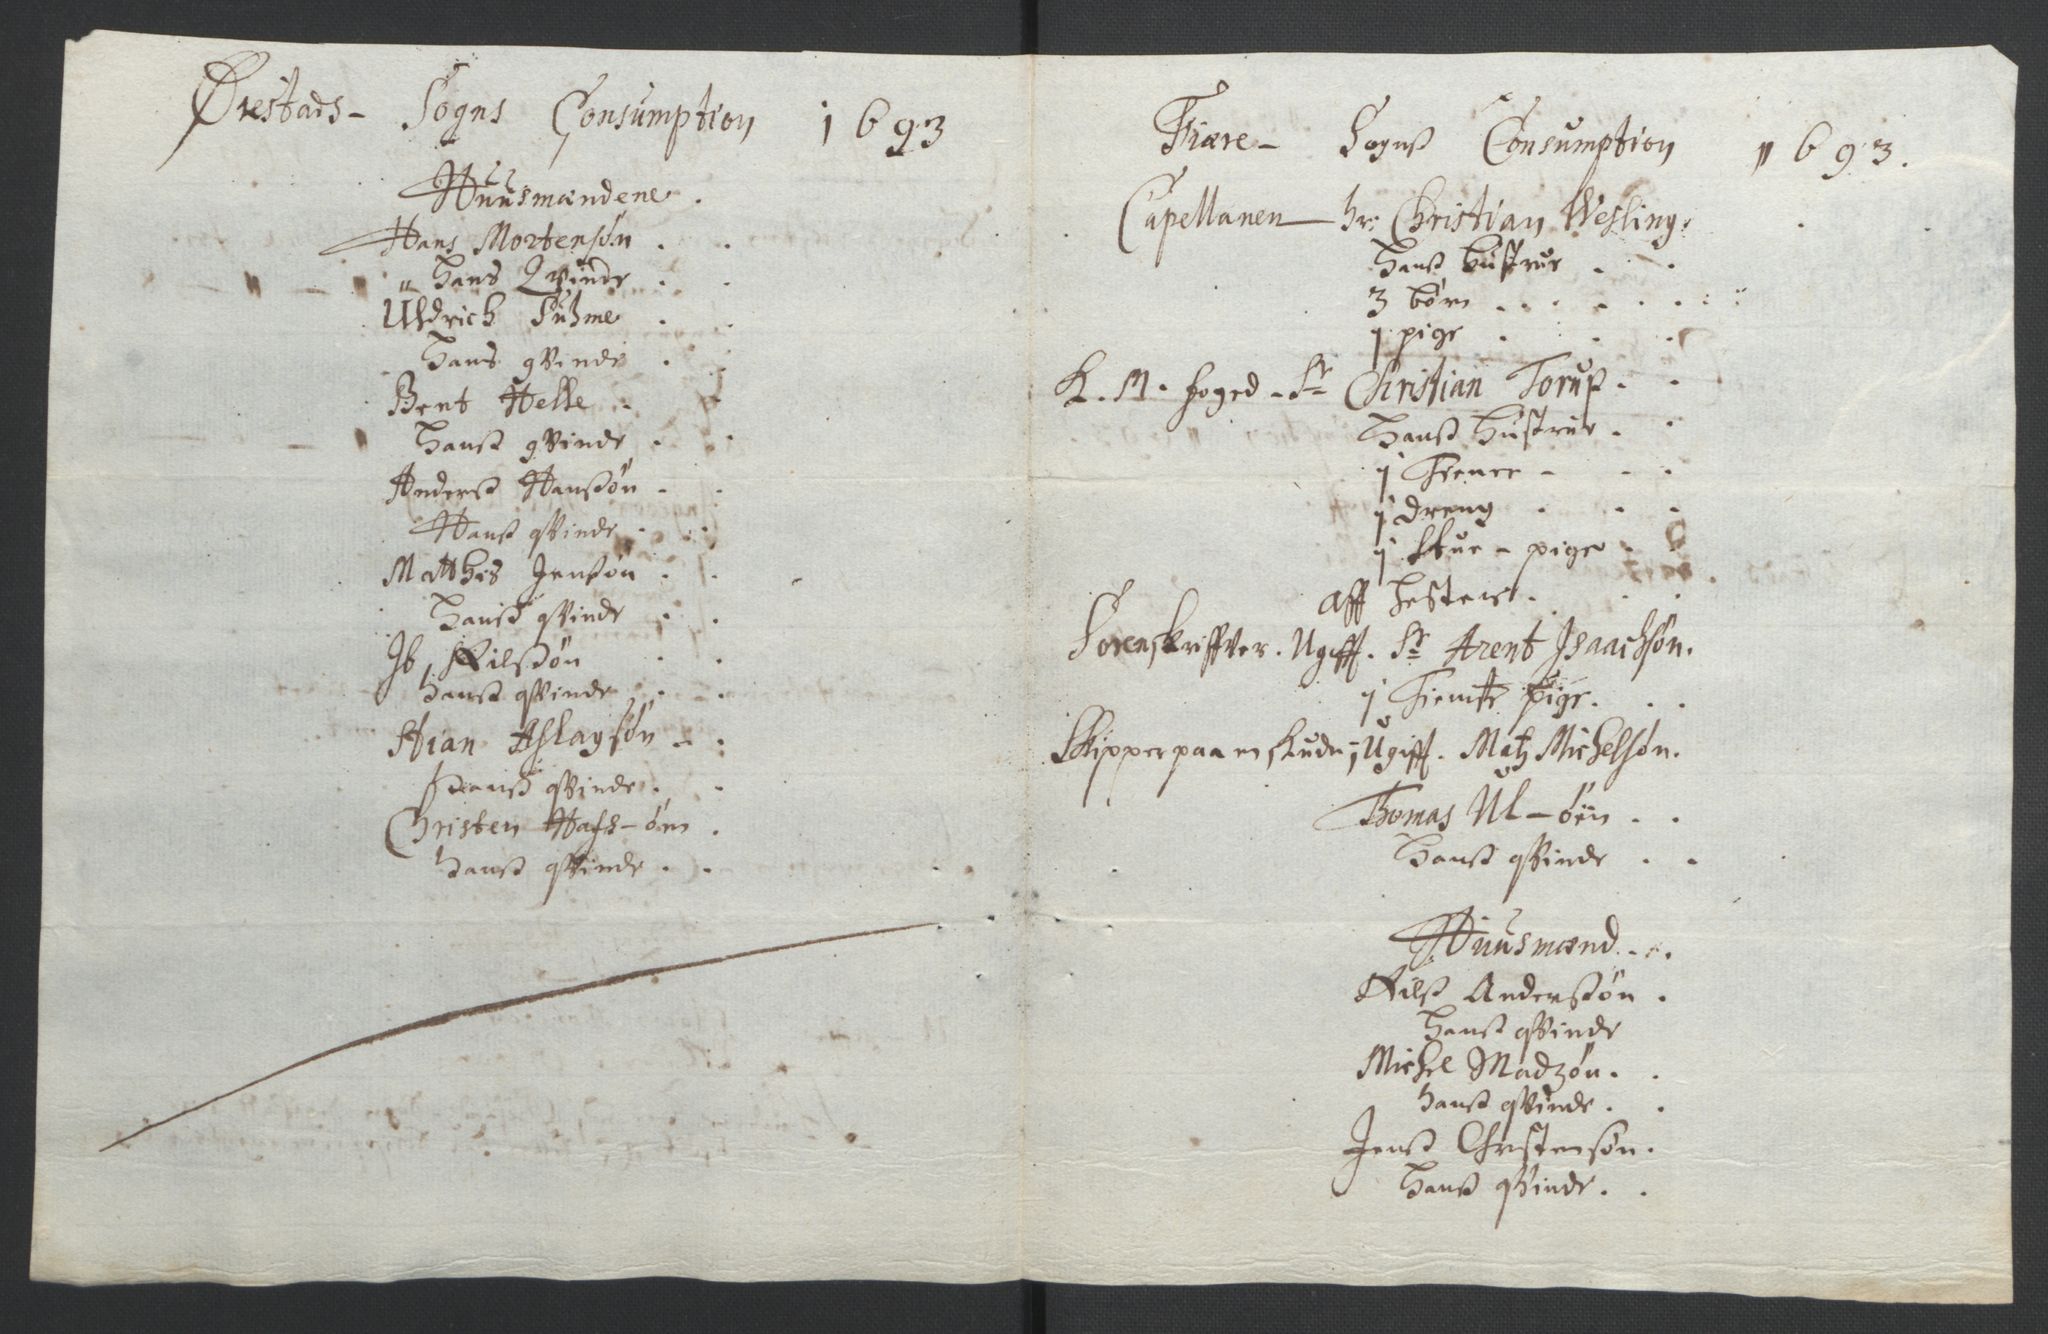 Ørestads- Sogns Consumption 1693
Huusmændene.
Hans Mortensøn
Hans Qvinde
Uldrich Suhme
Hans qvinde
Bent Helle
Hanß qvinde
Anderß Hanßøn
Hanß qvinde
Matthis Jenßøn
Hanß qvinde
Ib Nilßøn
hanß qvinde
Stian Aslagsøn
Hanß qvinde
Christen
hanß qvinde
Fiære- Sognß Consumption 1693.
Capellanen hr: Christian Wesling
Hanß hustrue
3 børn
1 pige
K. M. foged - Sr Christian Torup
Hanß hustrue
1 Tiener
1 dreng
1 Stue-pige
aff
Sorenskriffver. Ugift. Sr Arent Isaachsøn.
1 Tieniste pige.
Skipper paa en skude, Ugift. Matz Michelsøn.
Thomas Ul-øen
Hanß qvinde
Huusmænd
Nilß Anderßøn
Hanß qvinde
Michel Madzøn
hanß qvinde
Jenß Christensøn
Hanß qvinde